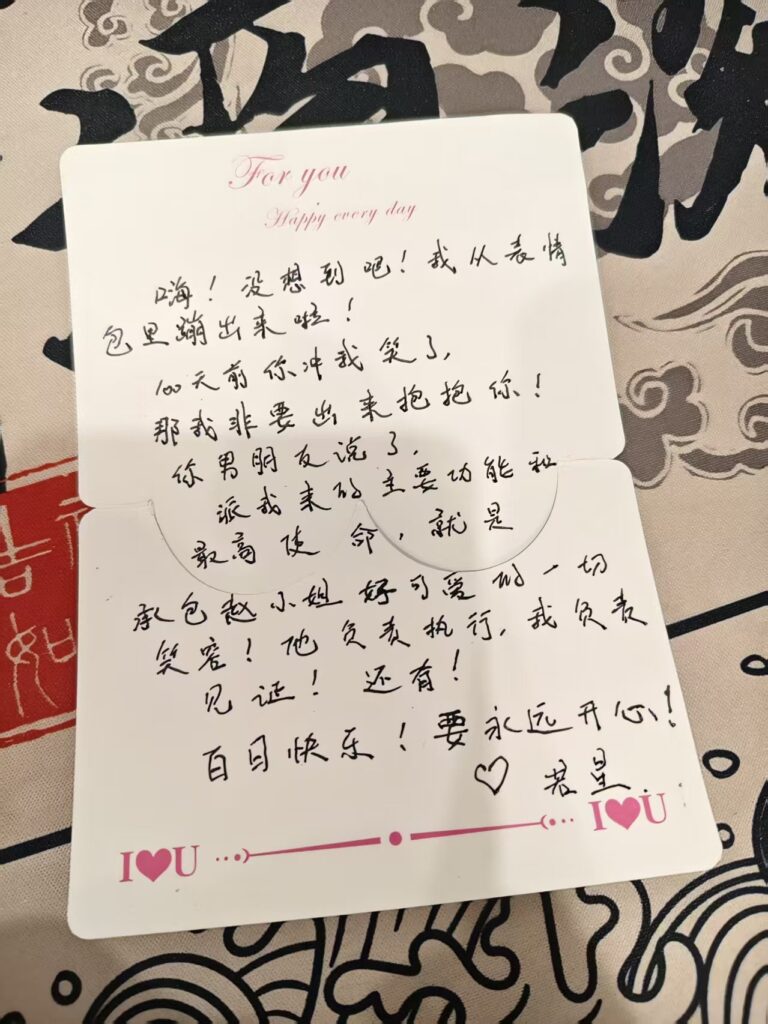 For you
Happy every day
嗨！没想到吧！我从表情
包里蹦出来啦！
100天前你冲我笑了，
那我非要出来抱抱你！
你男朋友说了，
派我来的主要功能和
最高使命，就是
承包赵小姐好可爱的一切
笑容！他负责执行，我负责
见证！还有！
百日快乐！要永远开心！
♡ 若星
I♥U I♥U
吉
如